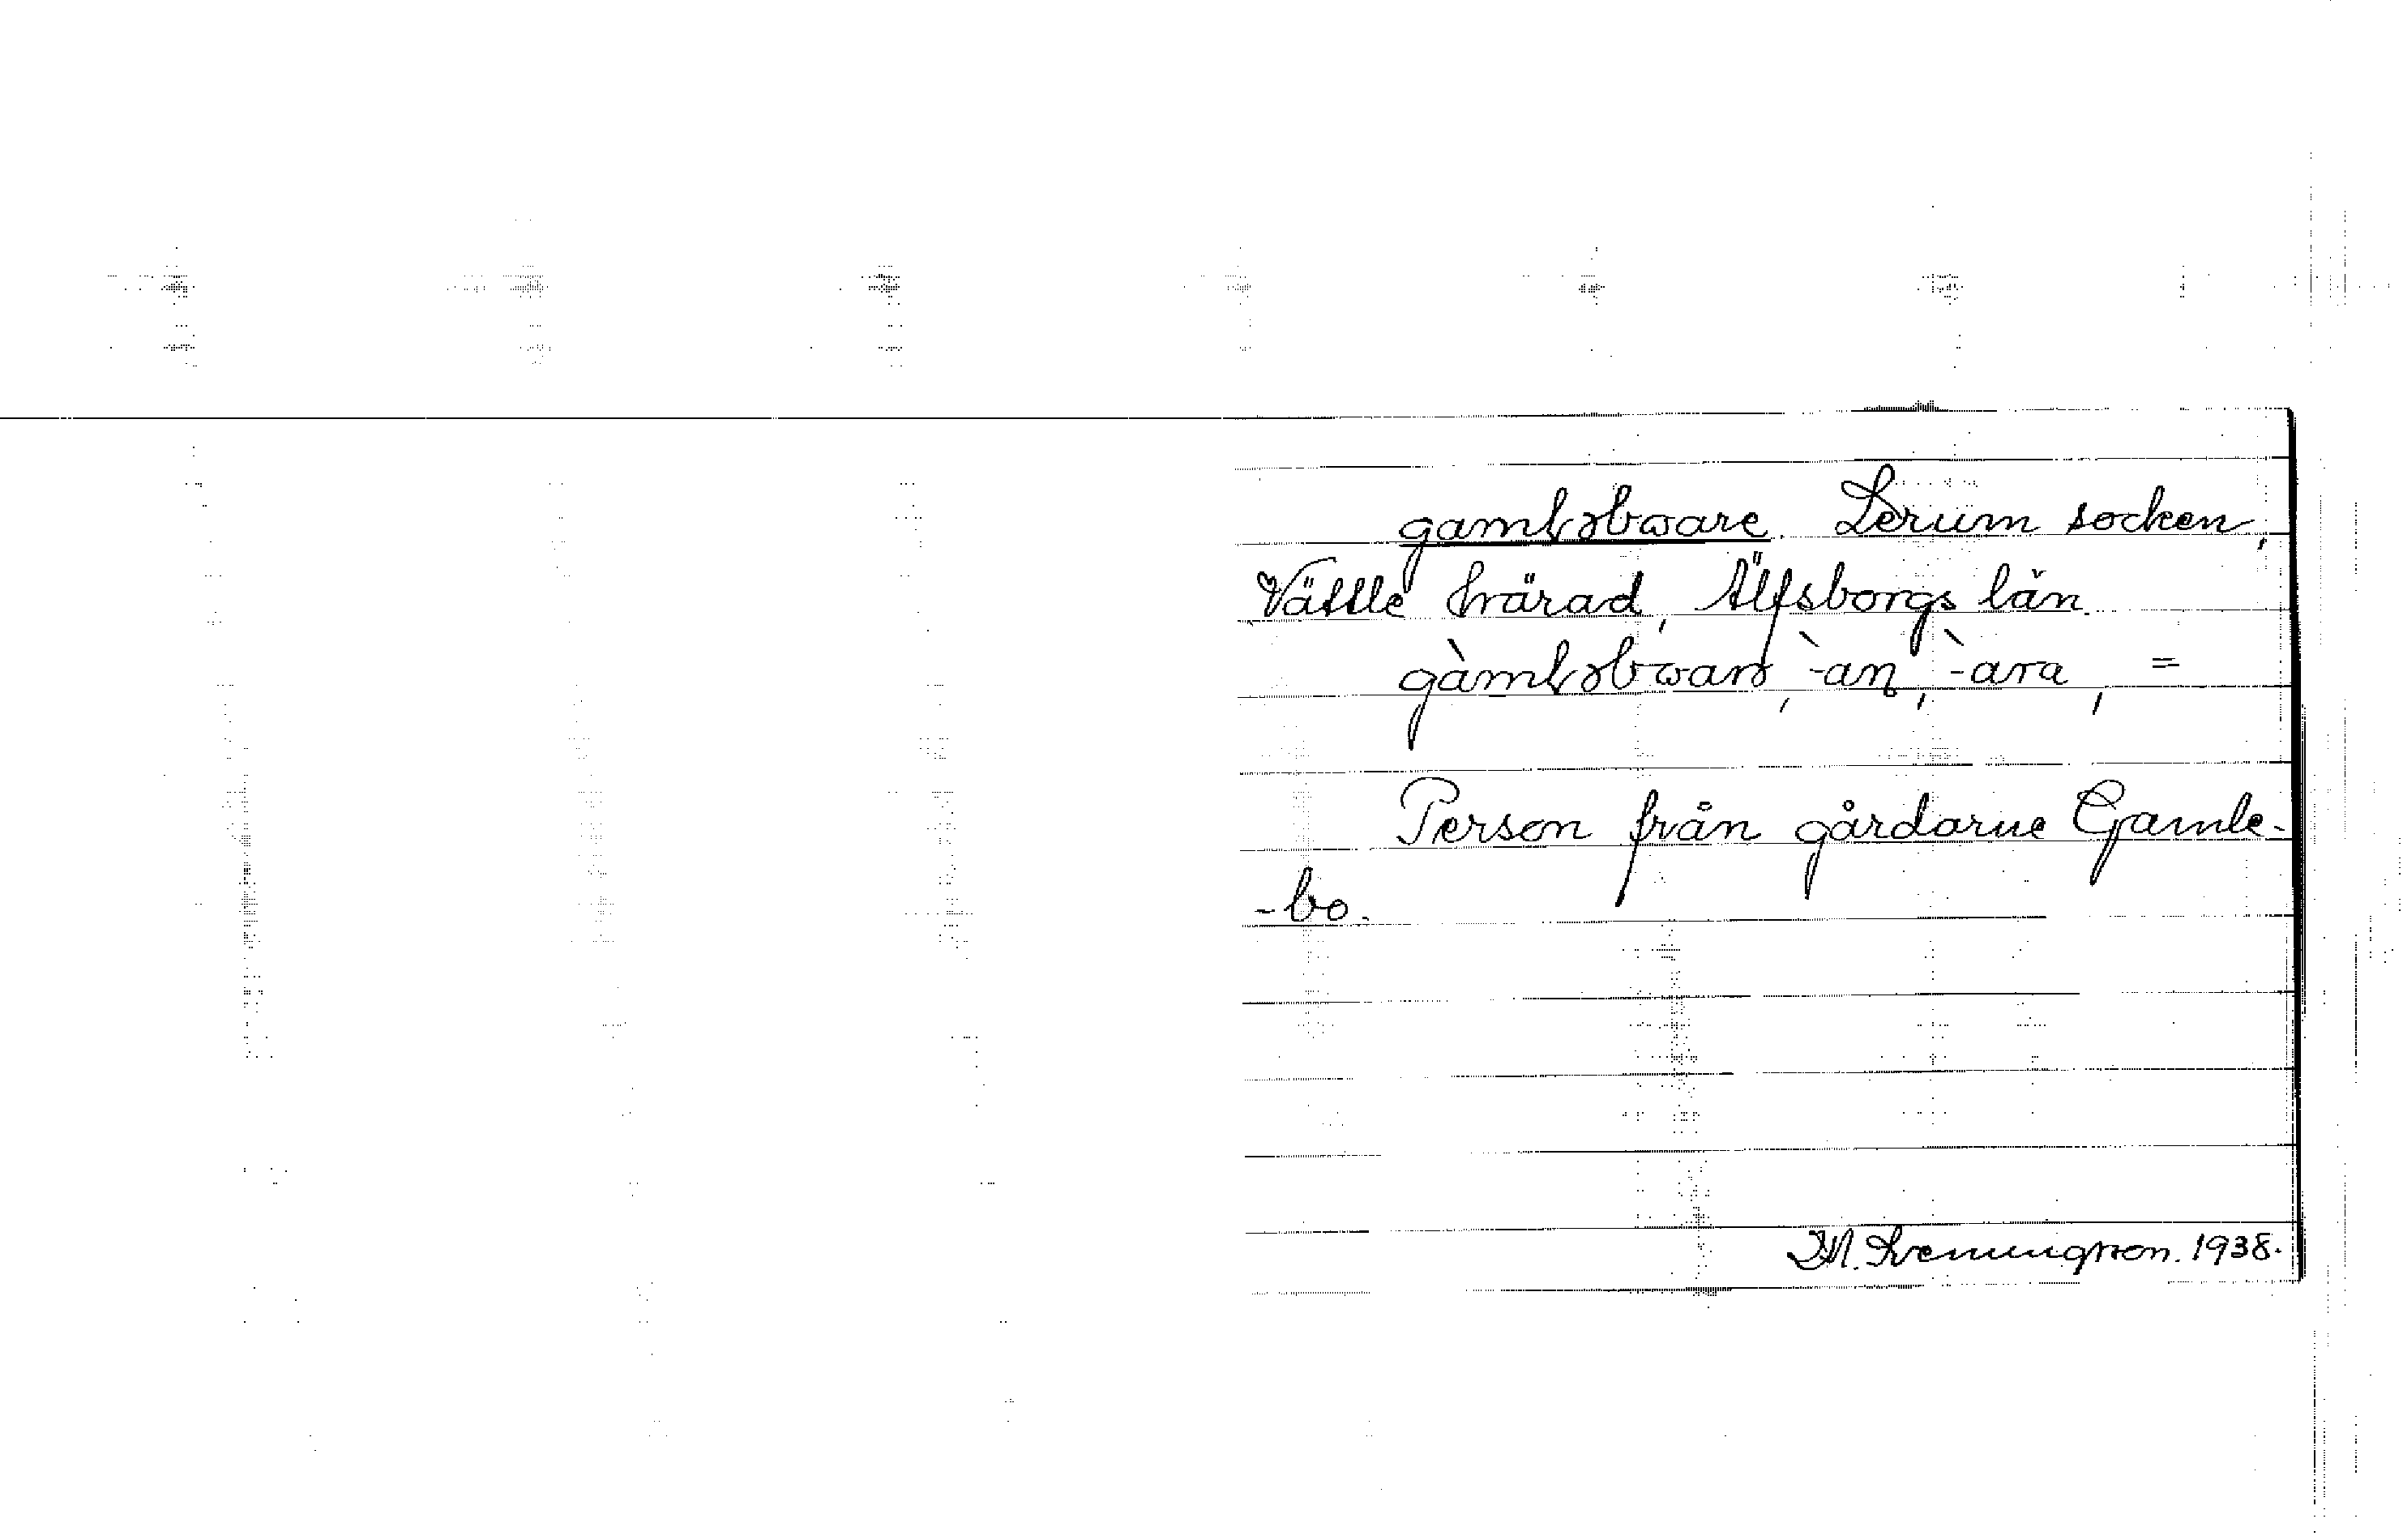 gamləboare. Lerum socken,
Vättle härad, Älfsborgs län.
gàmləboarə, -̀an, -̀ara, =
Person från gårdarne Gamle-
-bo.
1938.